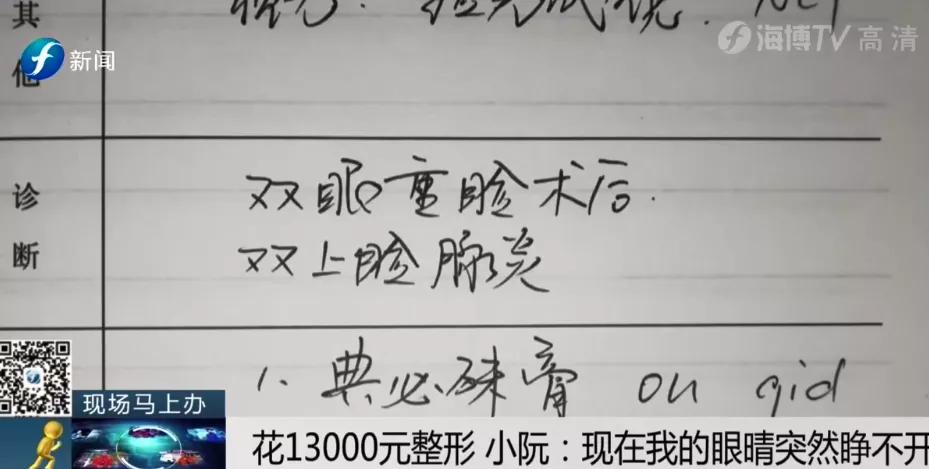 其他
新闻
海博TV高清
诊断
双眼重睑术后.
双上睑腺炎
1. 典必殊膏 ou qid
现场马上办
花13000元整形 小阮：现在我的眼睛突然睁不开